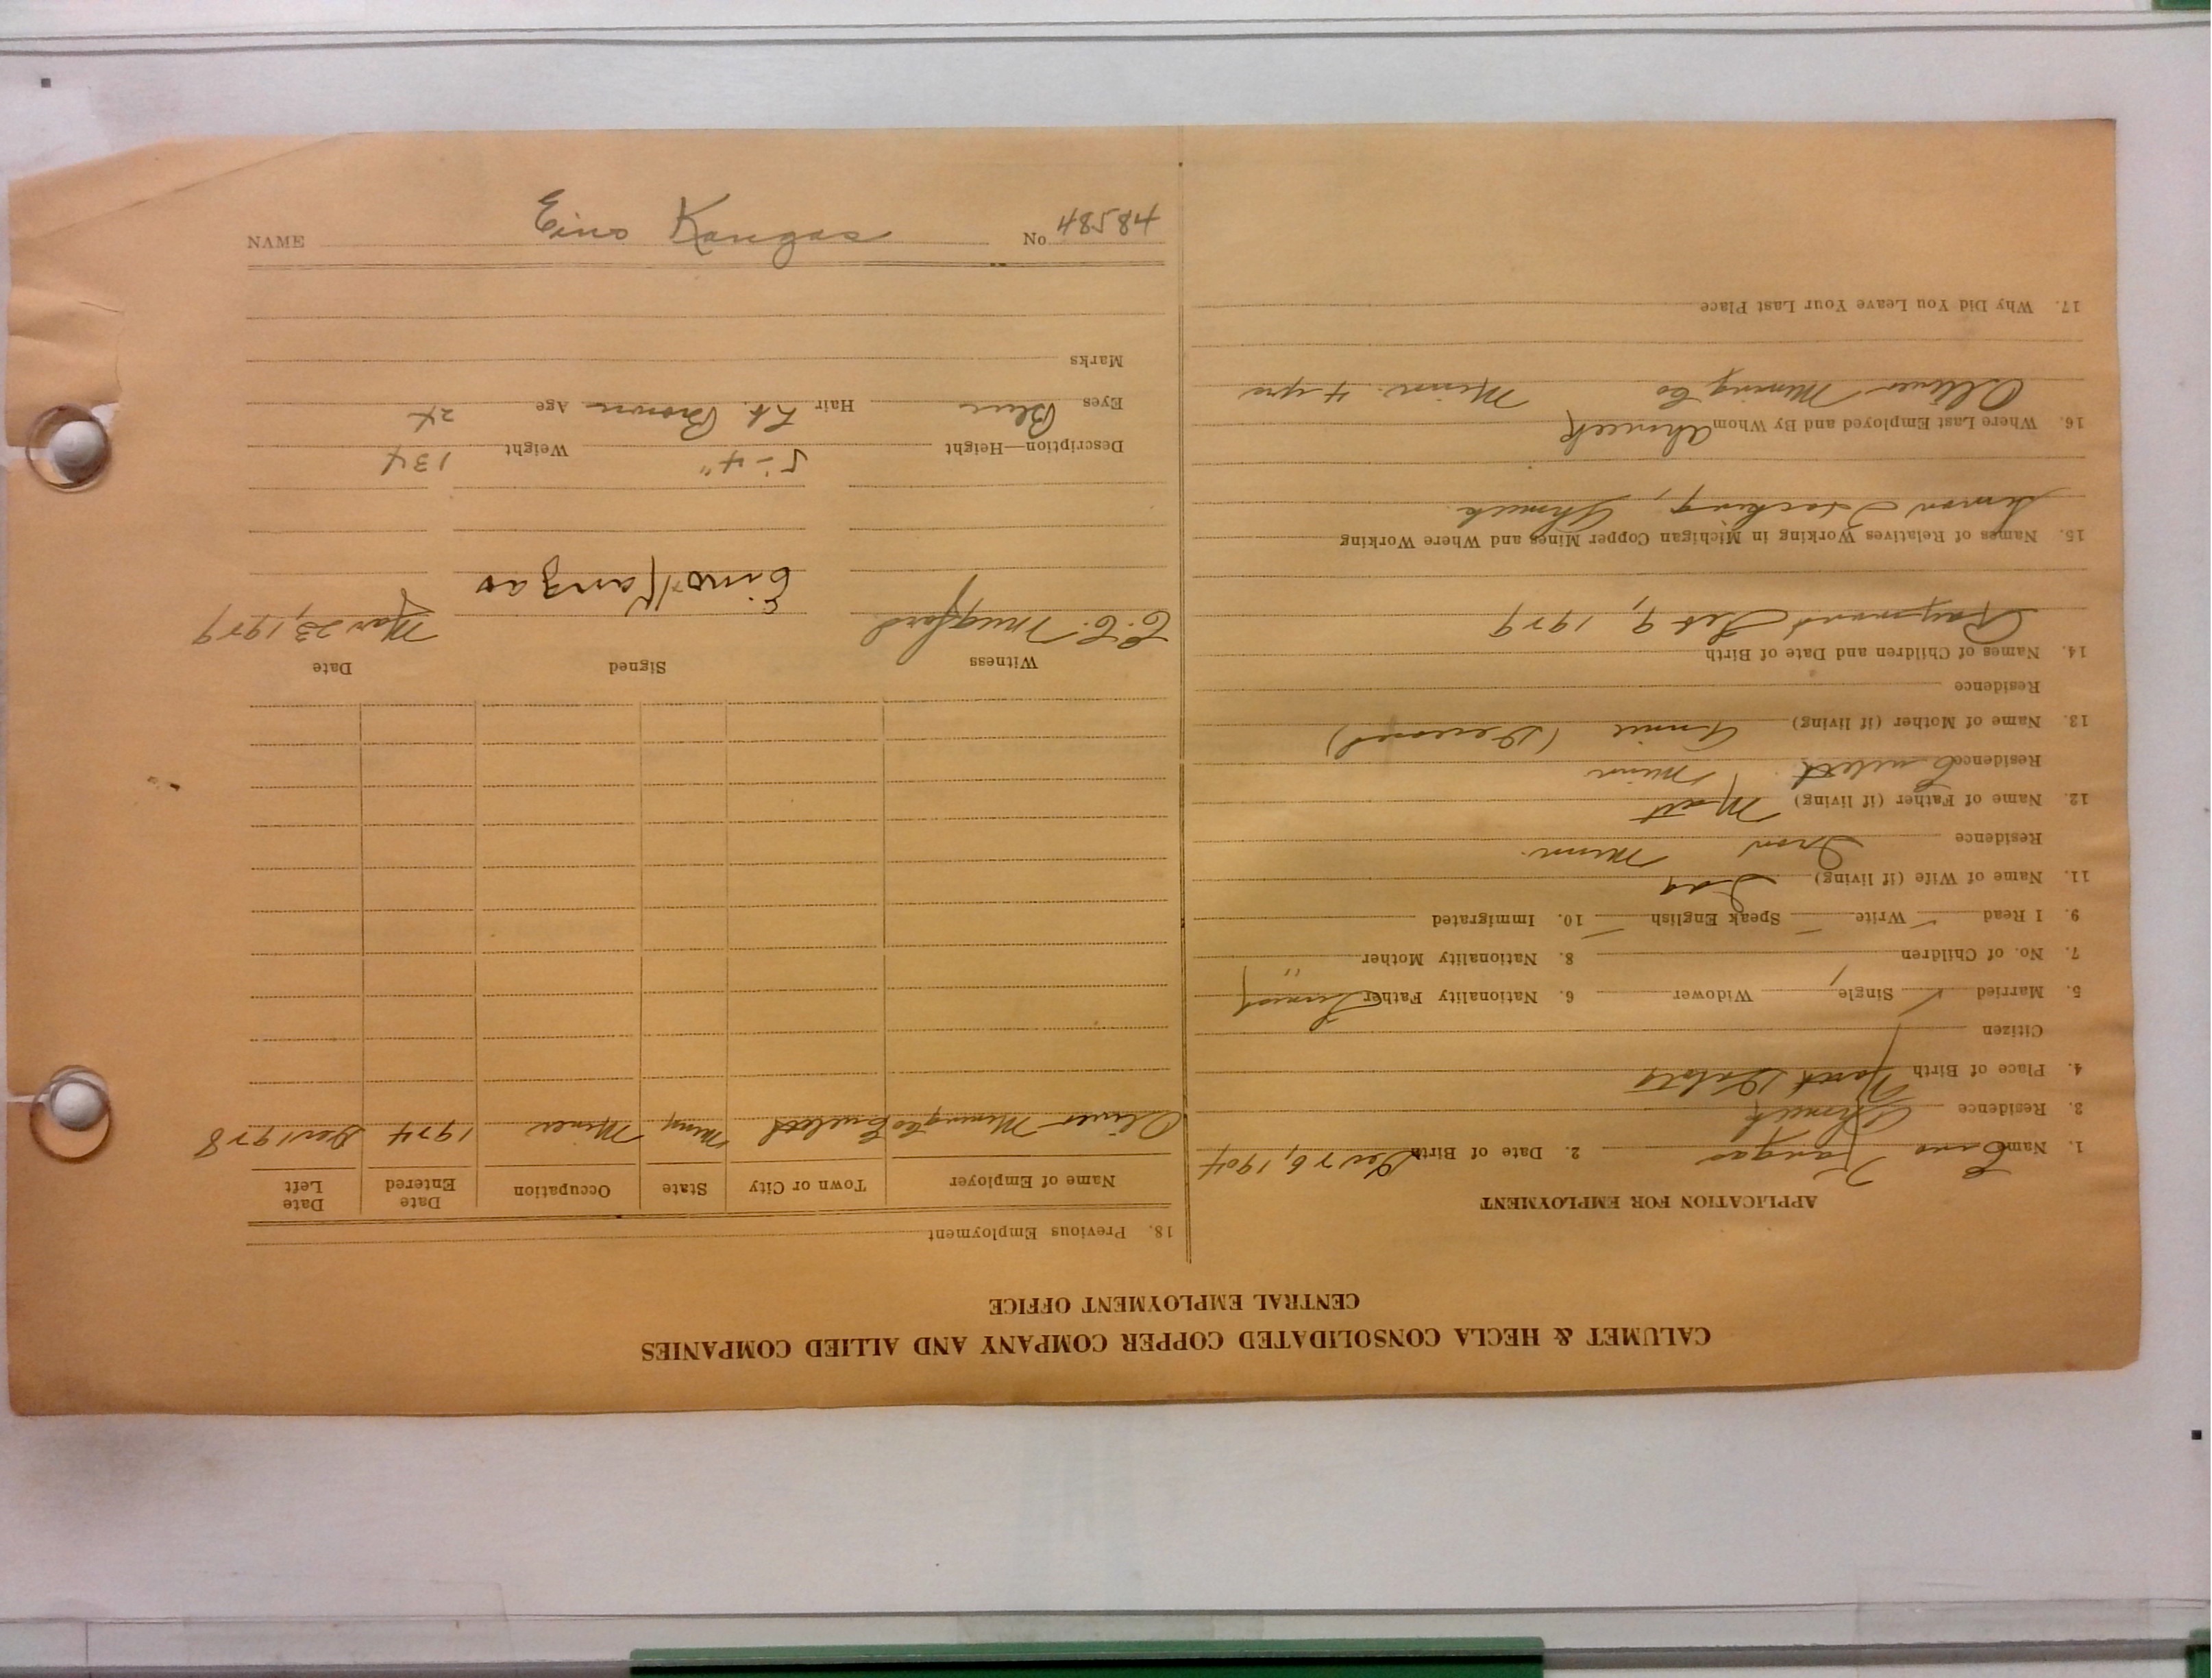 CALUMET & HECLA CONSOLIDATED COPPER COMPANY AND ALLIED COMPANIES
CENTRAL EMPLOYMENT OFFICE
APPLICATION FOR EMPLOYMENT
1. Name Eino Kangas 2. Date of Birth Dec 26, 1904
3. Residence Ahmeek
4. Place of Birth North Dakota
Citizen
5. Married ✓ Single Widower 6. Nationality Father Finnish
7. No. of Children 1 8. Nationality Mother "
9. I Read Write Speak English 10. Immigrated
11. Name of Wife (if living) Ina
Residence Iron Minn.
12. Name of Father (if living) Matt
Residence Eveleth Minn
13. Name of Mother (if living) Annie (Deceased)
Residence
14. Names of Children and Date of Birth
Raymond Feb 9, 1929
15. Names of Relatives Working in Michigan Copper Mines and Where Working
Ahmeek
16. Where Last Employed and By Whom Ahmeek
Oliver Mining Co Minn. 4 yrs
17. Why Did You Leave Your Last Place
18. Previous Employment
Name of Employer Town or City State Occupation Date Entered Date Left
Oliver Mining Co Eveleth Minn Miner 1924 Dec 1928
Witness Signed Date
E. C. Mugford Eino Kangas Mar 23, 1929
Description—Height 5'-4" Weight 134
Eyes Blue Hair Lt. Brown Age 24
Marks
NAME Eino Kangas No. 48584